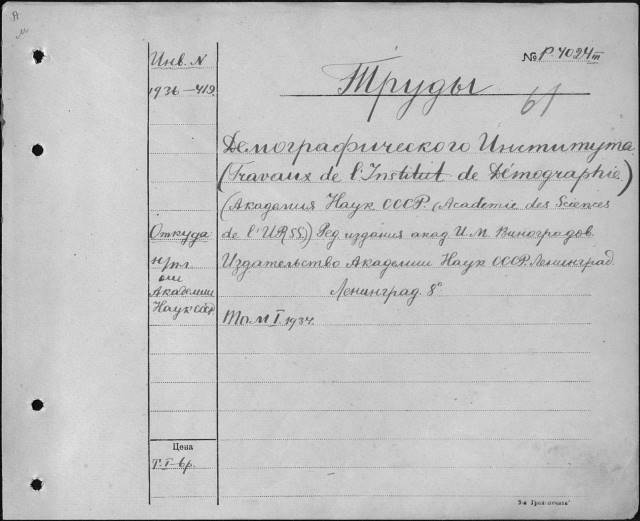 А
м
Инв. N
1936—419.
№ Р. 4024 III
Труды
61
Демографического Института
(Travaux de l'Institut de Démographie)
(Академия Наук СССР. (Academie des Sciences
de l'URSS)) Ред. издания акад. И. М. Виноградов.
Издательство Академии Наук СССР. Ленинград.
Ленинград. 8°
Том I. 1934.
Откуда
Академии
Наук СССР
Цена
Т. I - 6 р.